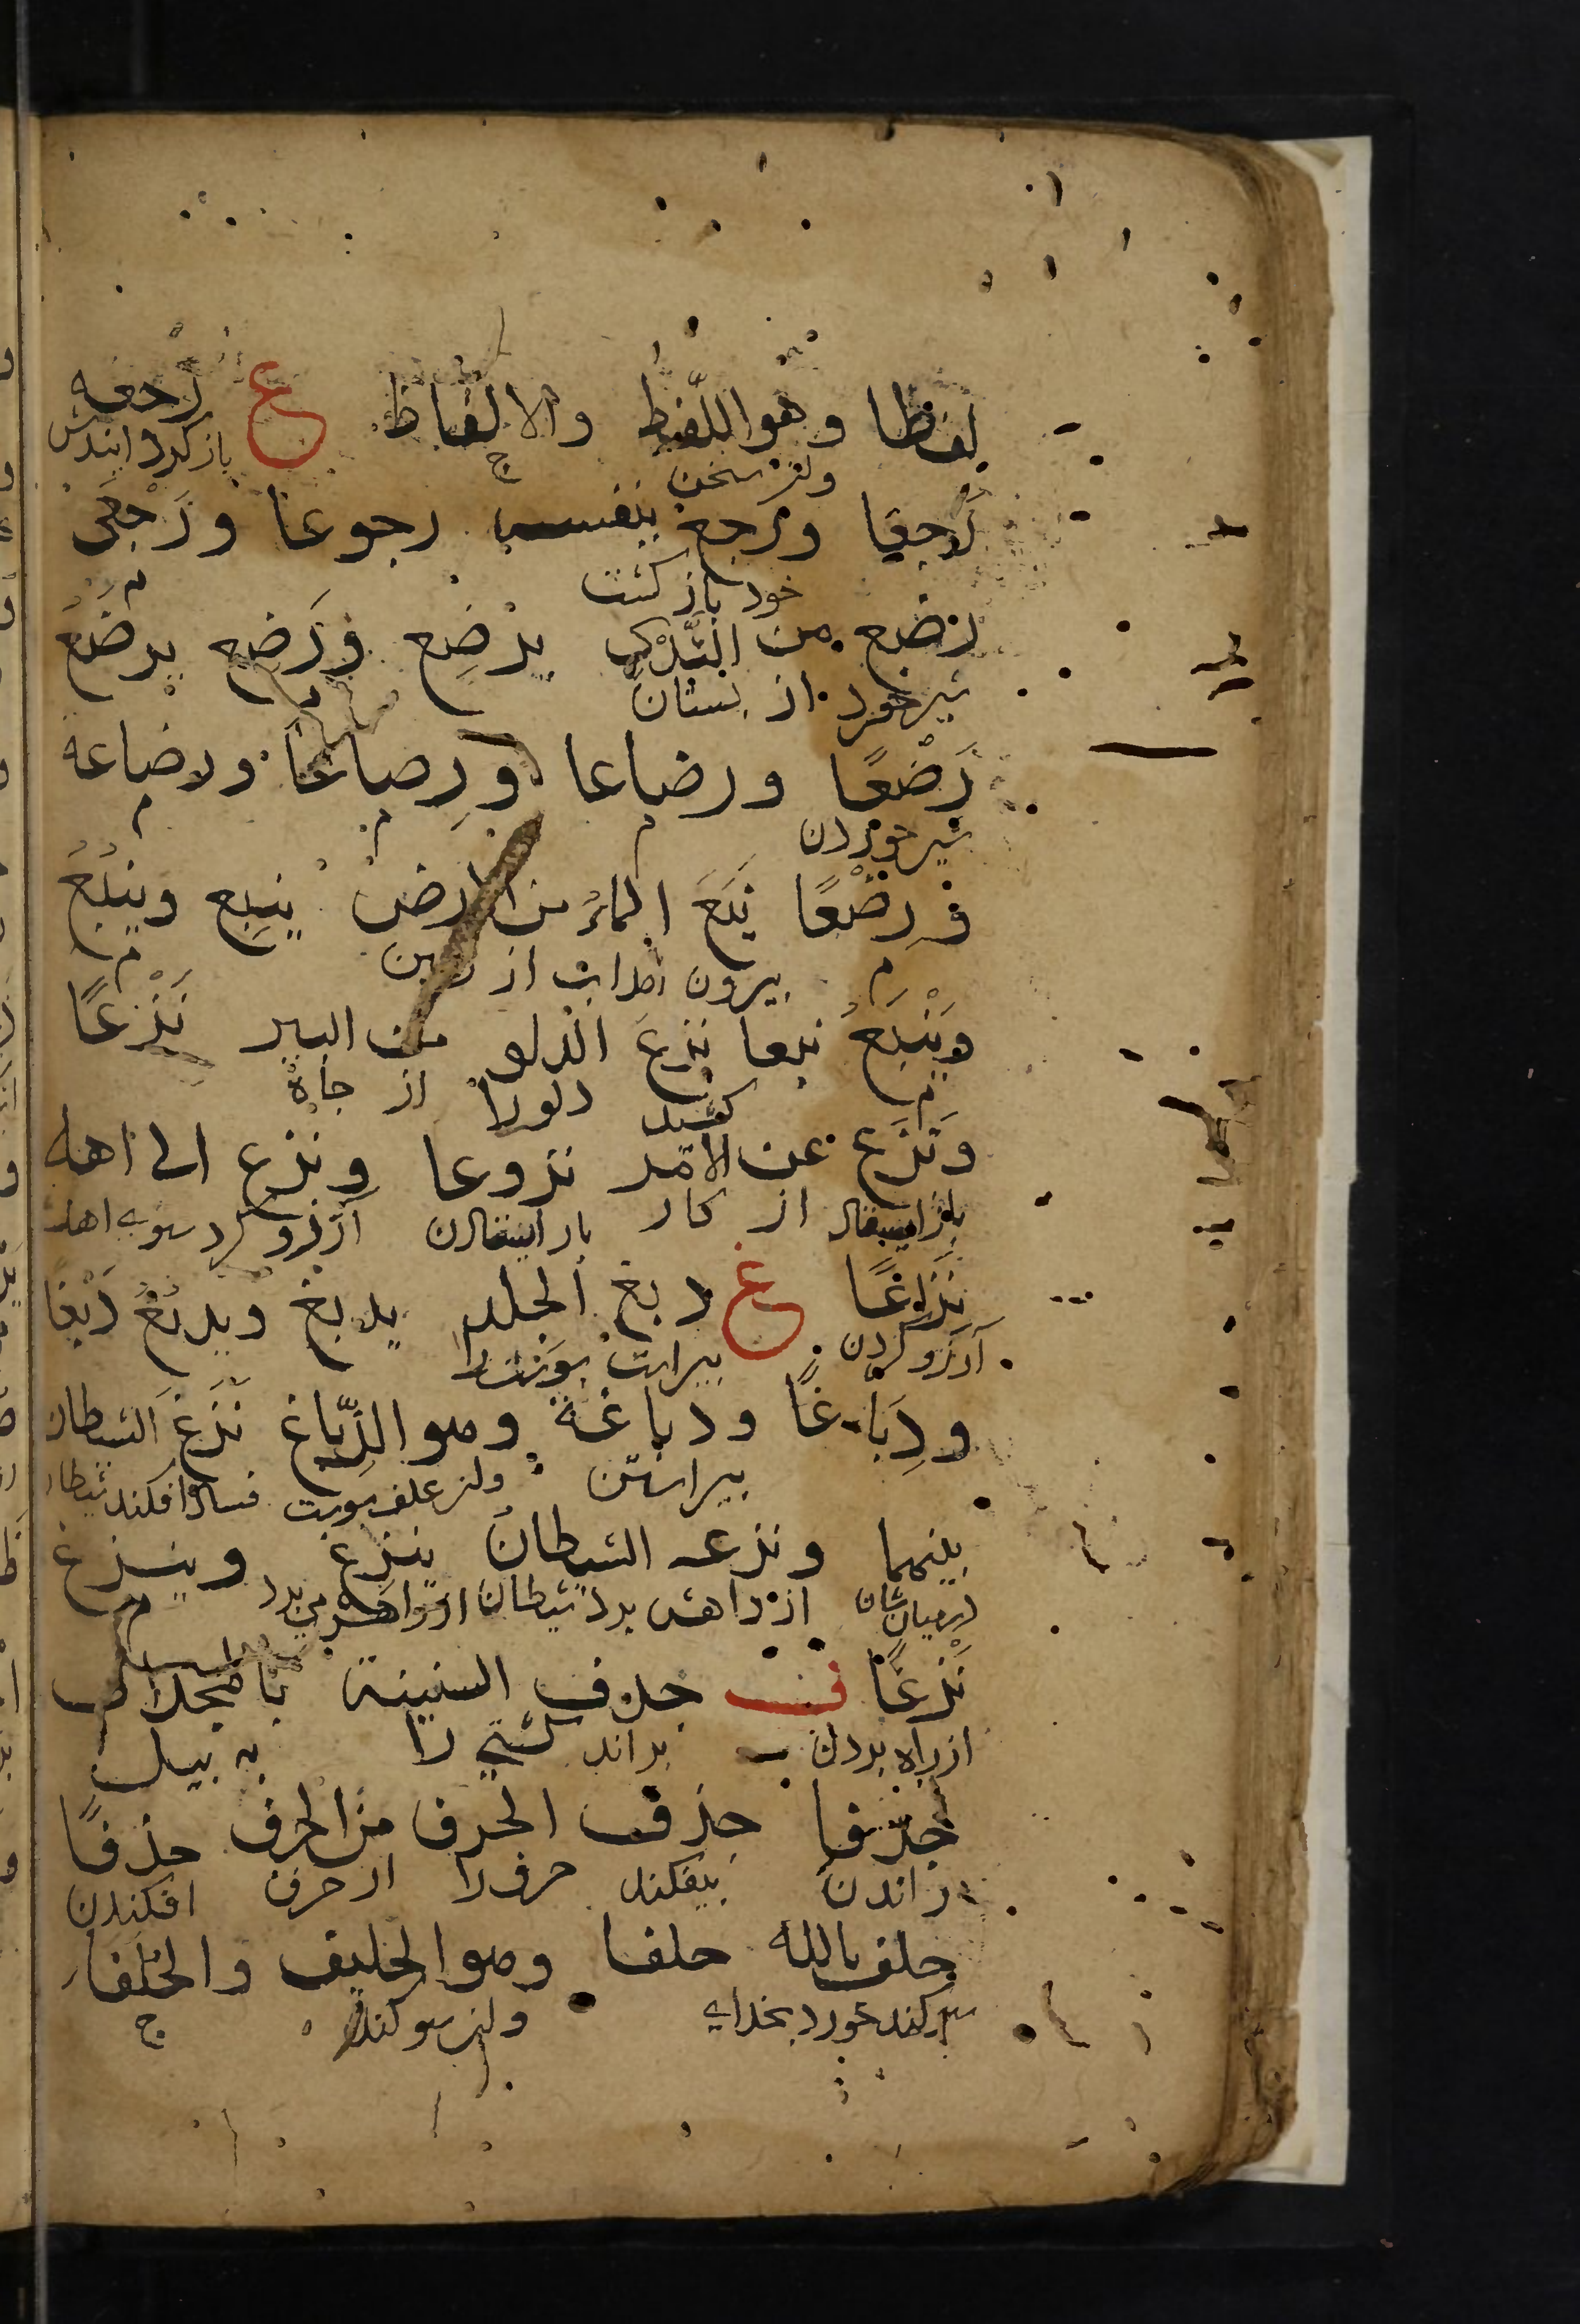 لفظا وهو اللّفظ والالفاظ ع رجعه
ولنز سخن ج باز کردانیدش
رَجعا ورجع بنفسه رجوعا ورُجعَى
خود باز کشت م
رضع من الثّدْی یرضِع ورَضِع یرضَعُ
شیر خورد از بستان م
رَضْعًا ورضاعا ورِضاعا ورضاعه
شیر خوردن م م م
ورِضْعًا نَبَعَ الماءُ من الارض ینبِع وینبُعُ
م بیرون امد اب از زمین م
ویَنْبَعُ نبعا نزع الدلو من البیر نَزْعًا
م کشید دلو را از چاه
ونَزَع عن الامر نزوعا ونزع الی اهله
باز ایستاد از کار باز ایستادن آرزو کرد سوی اهلـ
نِزَاعًا ع دبغ الجلد یدبِغ ویدبُغ دَبْغا
آرزو کردن بیراست بوست را
ودِبَاغًا ودباغة وهو الدِّبّاغ نَزَغَ الشیطان
بیراستن فساد افکند شیطان
بینهما ونزغه الشیطانُ ینزِغ وینزغ
در میان شان از راهش برد شیطان از راهش می برد م
نَزْغًا ف جدف السفینة بالمجداف
از راه بردن براند کشتی را به بیل
جدفا حذف الحرف من الحرف حذفًا
راندن بیفکند حرف را از حرف افکندن
حلف بالله حلفا وهو الحلیف والحُلفاء
سوکند خورد بخدای ج